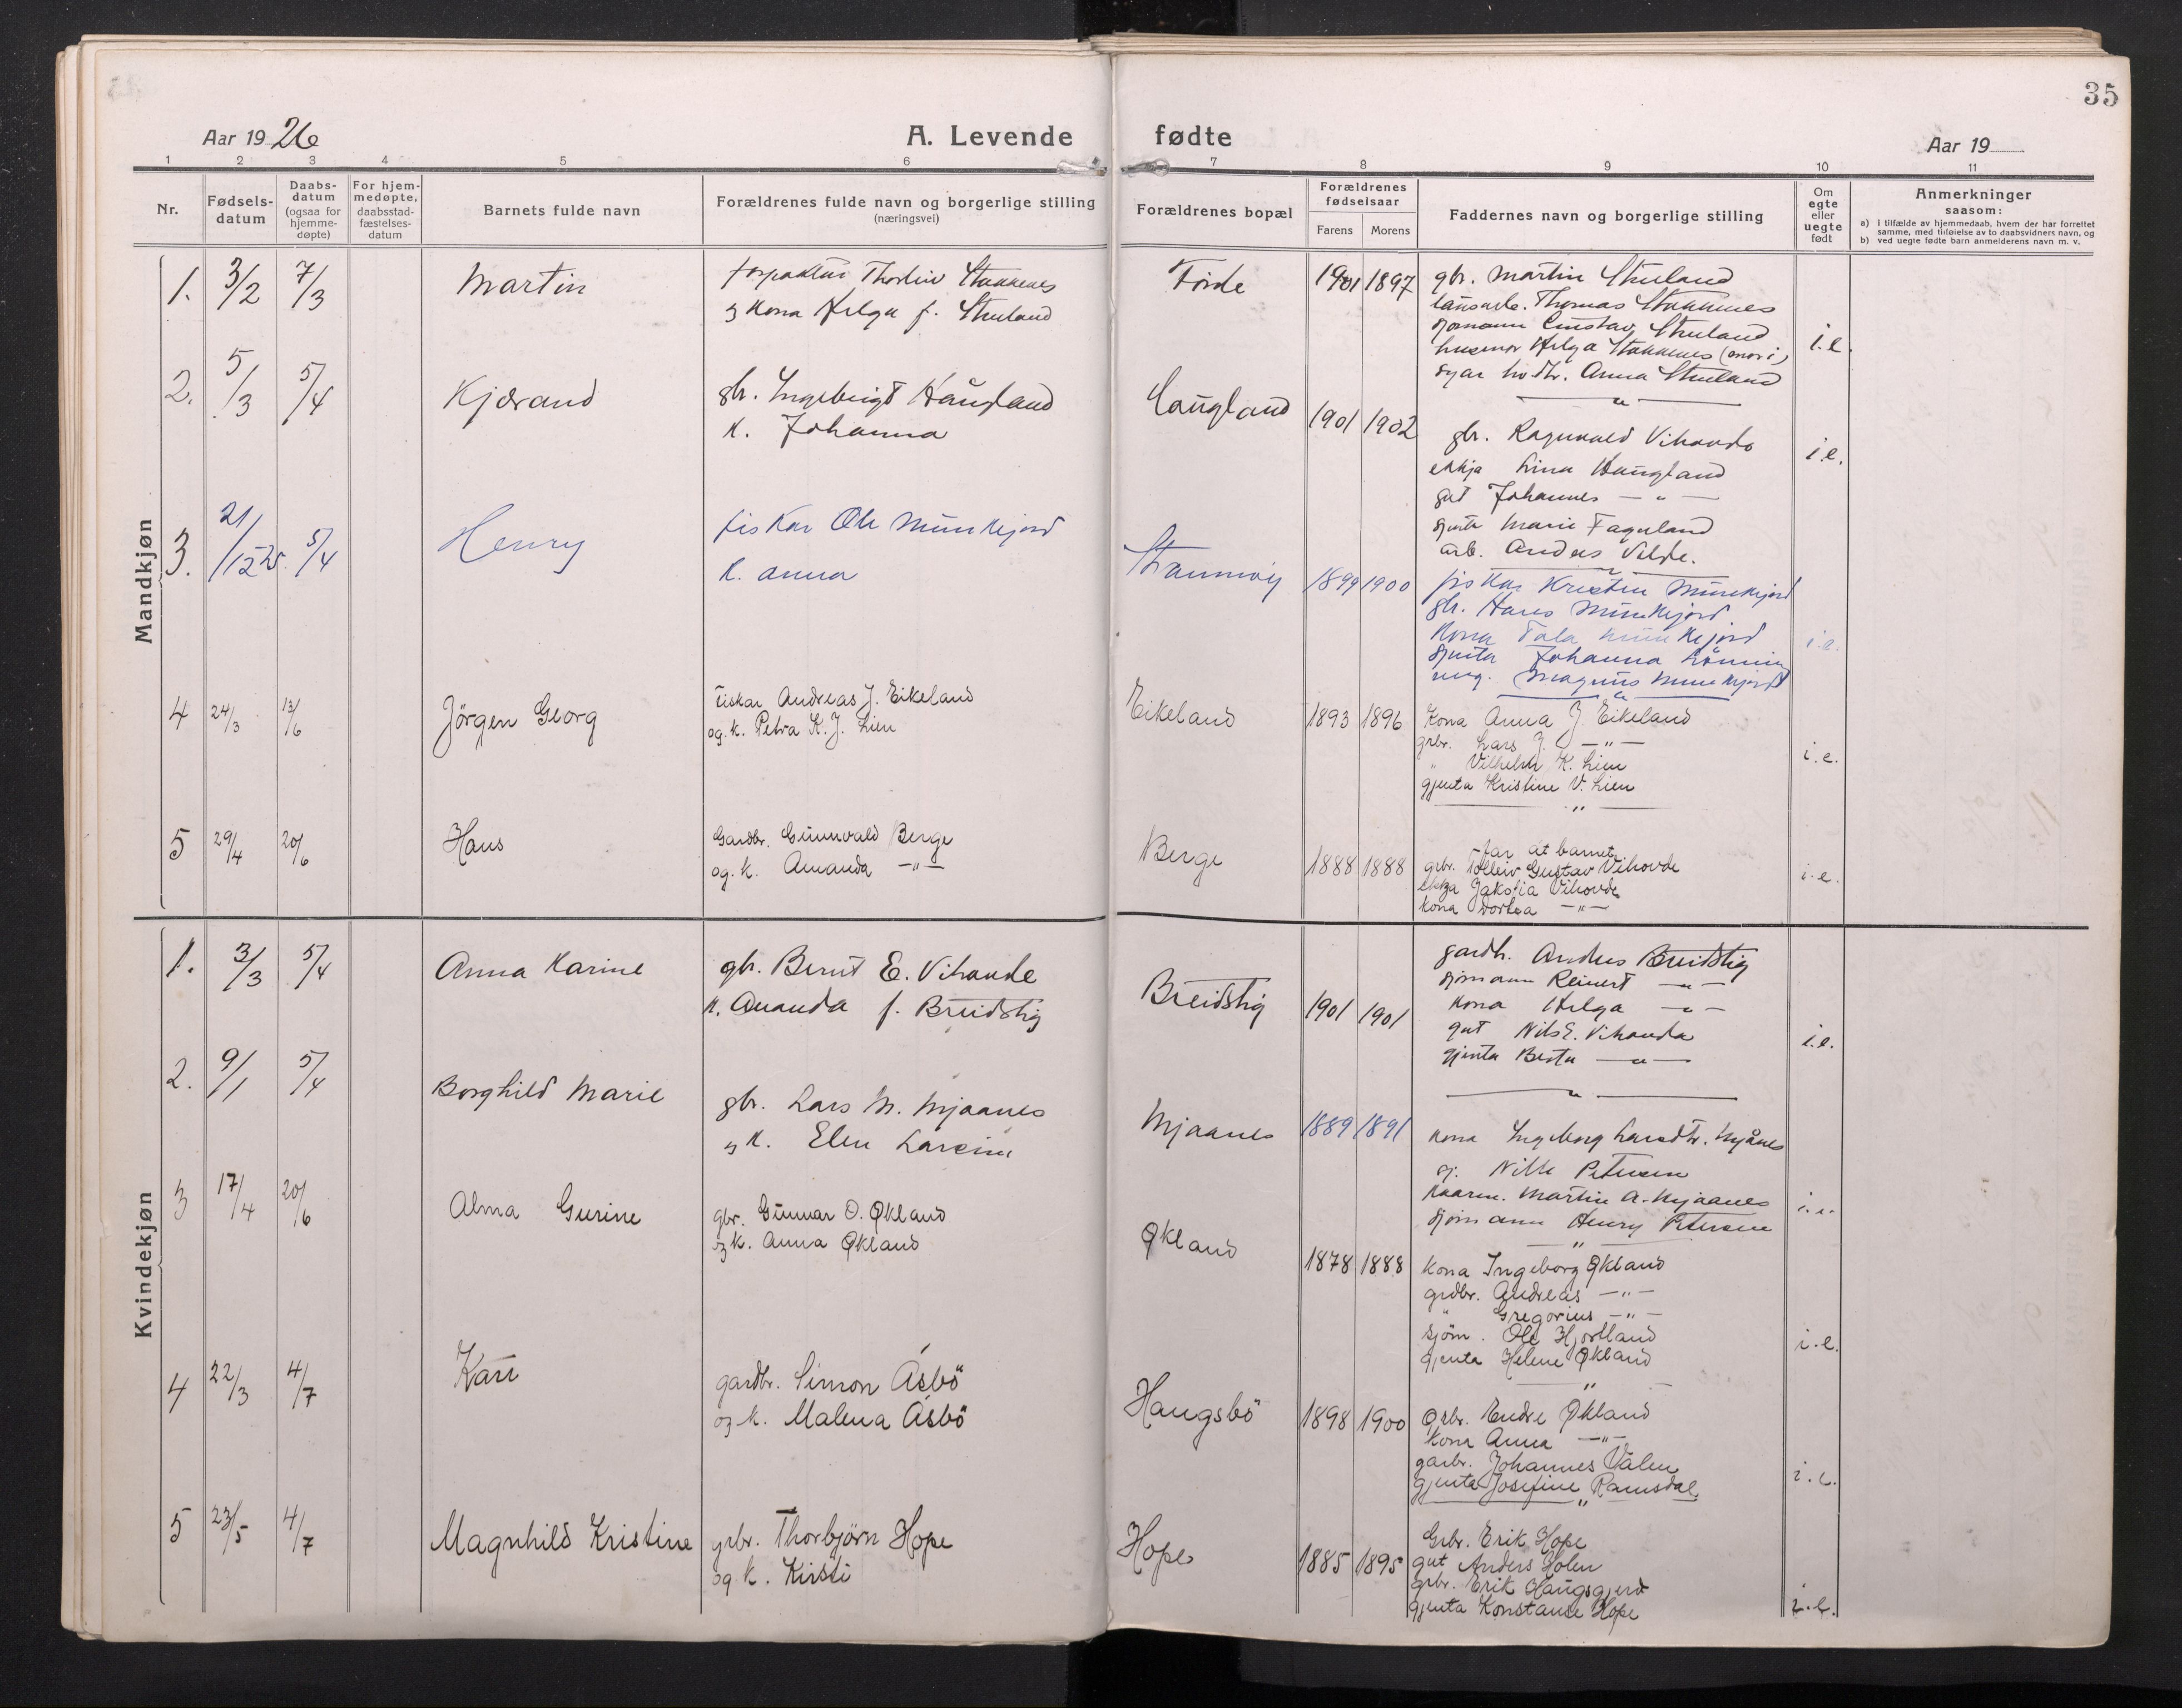 35
Aar 1926
A. Levende fødte
Aar 19
1 2 3 4 5 6 7 8 9 10 11
Nr.
Fødsels-
datum
Daabs-
datum
(ogsaa for
hjemme-
døpte)
For hjem-
medøpte,
daabsstad-
fæstelses-
datum
Barnets fulde navn
Forældrenes fulde navn og borgerlige stilling
(næringsvei)
Forældrenes bopæl
Forældrenes
fødselsaar
Farens Morens
Faddernes navn og borgerlige stilling
Om
egte
eller
uegte
født
Anmerkninger
saasom:
a) i tilfælde av hjemmedaab, hvem der har forrettet
samme, med tilføielse av to daabsvidners navn, og
b) ved uegte fødte barn anmelderens navn m. v.
Mandkjøn
1. 3/2 7/3 Martin
Stakkenes
kona Helga f. Stuland
Førde 1901 1897
gbr. Martin Stuland
Thomas Stakkenes
sjømann Gustav Stuland
husmor Helga Stakkenes (mor i)
Anna Stuland
i.e.
2. 5/3 5/4 Kjærand
gbr. Ingebrigt Haugland
k. Johanna
Haugland 1901 1902
gbr. Ragnvald Vihovde
ekkja Lina Haugland
gut Johannes — " —
gjenta Marie Fagerland
arb. Anders Velde.
i.e.
3. 21/12 25. 5/4 Henry
fiskar Ole Munkejord
k. Anna
1899 1900
fiskar Kristen Munkejord
gbr. Hans Munkejord
kona Tala Munkejord
gjenta Johanna Lønning
ung. Magnus Munkejord
i.e.
4 24/3 13/6 Jörgen Georg
Fiskar Andreas J. Eikeland
og. k. Petra K. J. Lien
Eikeland 1893 1896
Kona Anna J. Eikeland
grbr. Lars J. — " —
" Vilhelm K. Lien
gjenta Kristine V. Lien
i.e.
5 29/4 20/6 Hans
Gardbr. Gunnvald Berge
og. k. Amanda — " —
Berge 1888 1888
far at barnet
grbr. Tolleiv Gustav Vihovde
ekkja Jakobia Vihovde
kona Dortea — " —
i.e.
Kvindekjøn
1. 3/3 5/4 Anna Karine
gbr. Bernt E. Vihovde
k. Amanda f. Breidstig
Breidstig 1901 1901
gardb. Anders Breidstig
sjømann Reinert — " —
kona Helga — " —
gut Nils E. Vihovde
gjenta Berta — " —
i.e.
2. 9/1 5/4 Borghild Marie
gbr. Lars M. Mjaanes
og k. Elen Larsine
Mjaanes 1889 1891
kona Ingeborg Larsdtr. Mjånes
gj. Nille Petersen
Martin A. Mjaanes
sjømann Henry Petersen
i.e.
3 17/4 20/6 Alma Gurine
gbr. Gunnar O. Økland
og k. Anna Økland
Økland 1878 1888
Kona Ingeborg Økland
grdbr. Andreas — " —
" Gregorius — " —
sjöm. Ole Hjortland
gjenta Helene Økland
i.e.
4 22/3 4/7 Kari
gardbr. Simon Åsbö
og k. Malena Åsbö
Haugsbö 1898 1900
Grbr. Endre Økland
Kona Anna — " —
garbr. Johannes Vålen
gjenta Josefine Ramsdal
i.e.
5 23/5 4/7 Magnhild Kristine
grbr. Thorbjörn Hope
og k. Kirsti
Hope 1885 1895
Grbr. Erik Hope
gut Anders Holen
grbr. Erik Haugsgjerd
gjenta Konstanse Hope
i.e.